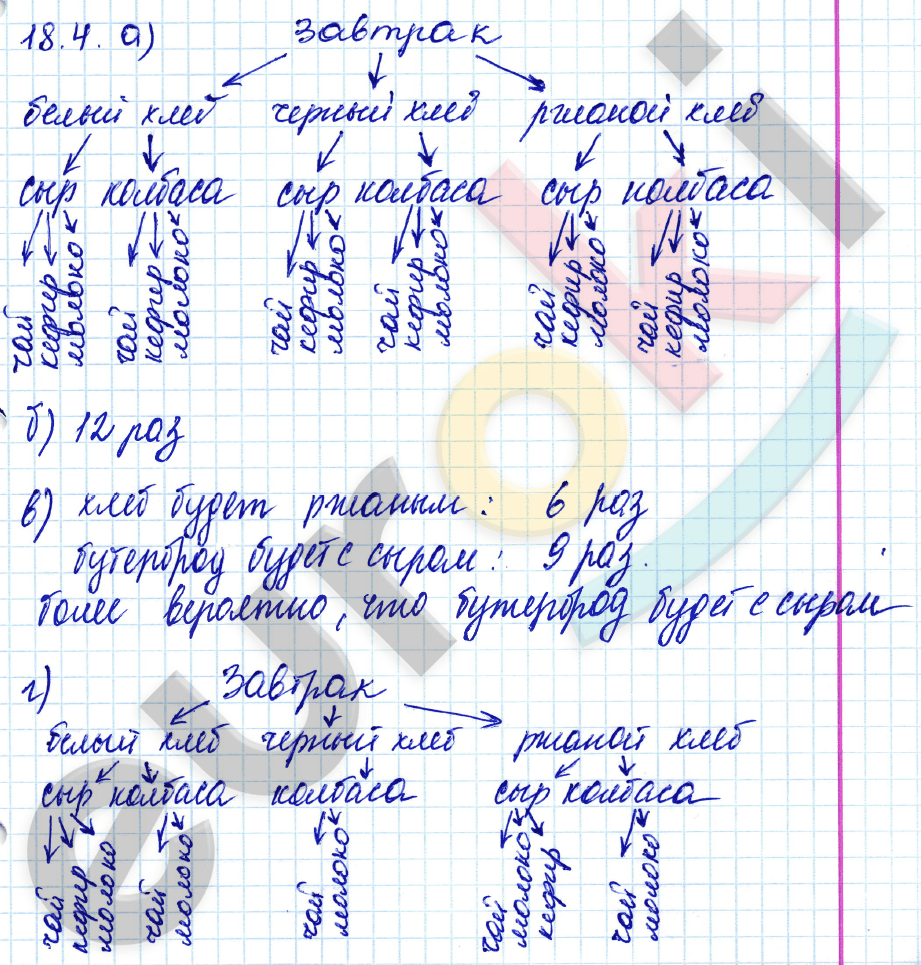 18.4. а) Завтрак
белый хлеб черный хлеб ржаной хлеб
сыр колбаса сыр колбаса сыр колбаса
чай кефир молоко чай кефир молоко чай кефир молоко чай кефир молоко чай кефир молоко чай кефир молоко
б) 12 раз
в) хлеб будет ржаным: 6 раз
бутерброд будет с сыром: 9 раз.
более вероятно, что бутерброд будет с сыром
г) Завтрак
белый хлеб черный хлеб ржаной хлеб
сыр колбаса колбаса сыр колбаса
чай кефир молоко чай молоко чай молоко чай молоко кефир чай молоко
euroki